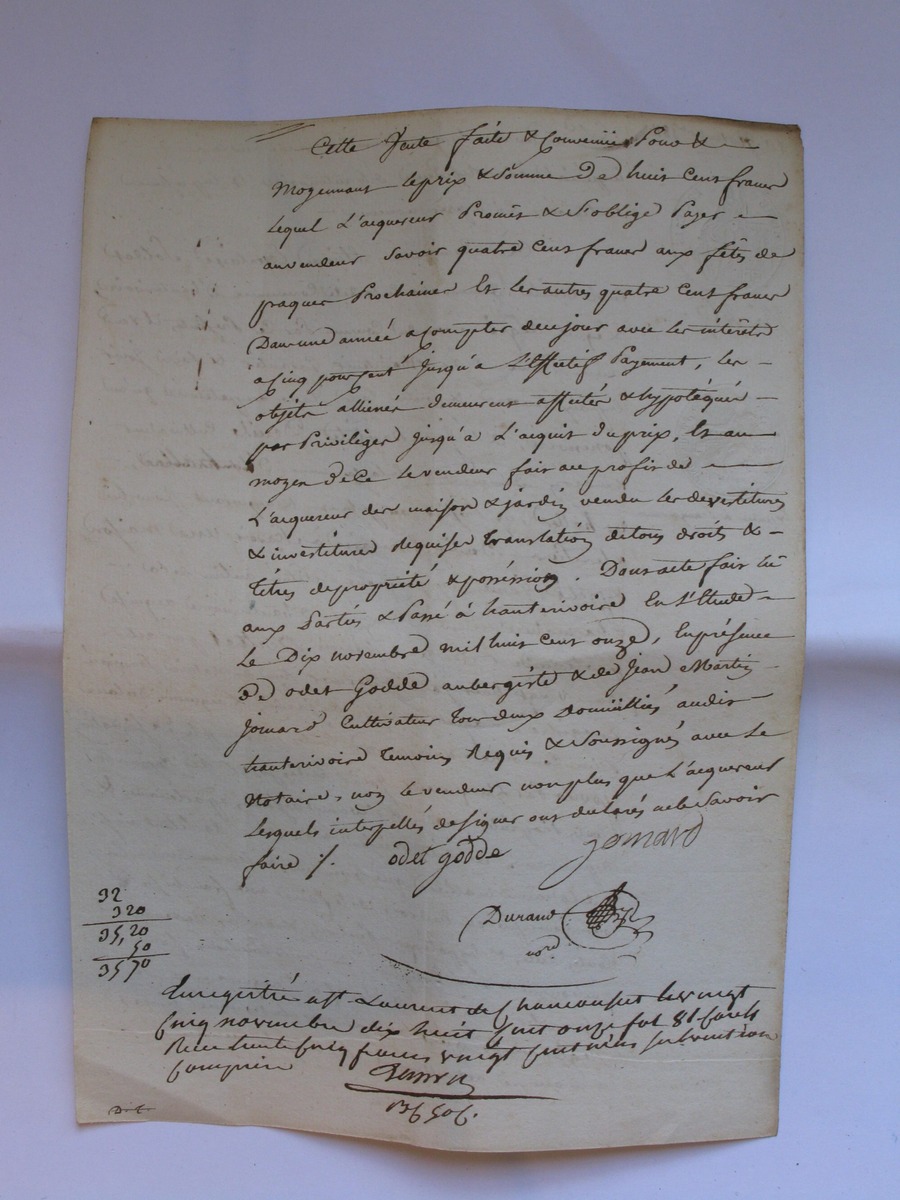 Cette Vente faite & Convenüe Pour &
Moyennant le prix & Somme De huit Cent francs
Lequel L'acquereur Promet & S'oblige Payer
au vendeur Savoir quatre Cent francs aux fêtes de
paques Prochaines Et les autres quatre Cent francs
Dans une année a Compter de ce jour avec les intérêts
a Cinq pour Cent Jusqu'a L'Effectif Payement, les
objets alliénés demeurent affectés & hypotéqués
par Privilége Jusqu'a L'acquit du prix, Et au
moyen De Ce le vendeur fait au profit de
L'acquereur des maison & jardin vendu les devestitures
& investitures Requises translation de tous droits &
titres de propriété & posséssion. Dont acte fait lû
aux Parties & Passé à hauterivoire En L'Etude
Le Dix novembre mil huit cent onze, En présence
De odet Godde aubergiste & de Jean Martin
Jomard Cultivateur tous deux Domicilliés audit
hauterivoire temoins Requis & Soussignés avec Le
Notaire, non le vendeur non plus que L'acquereur
Lesquels interpellés de signer ont déclarés ne le Savoir
faire /. odet godde Jomard
Durand
nore
32
3 20
35,20
,50
35 70
Enregistré a St. Laurent de Chamousset le vingt
Cinq novembre dix huit Cent onze fol. 81
Recu trente Cinq francs vingt Centimes subvention
Comprise